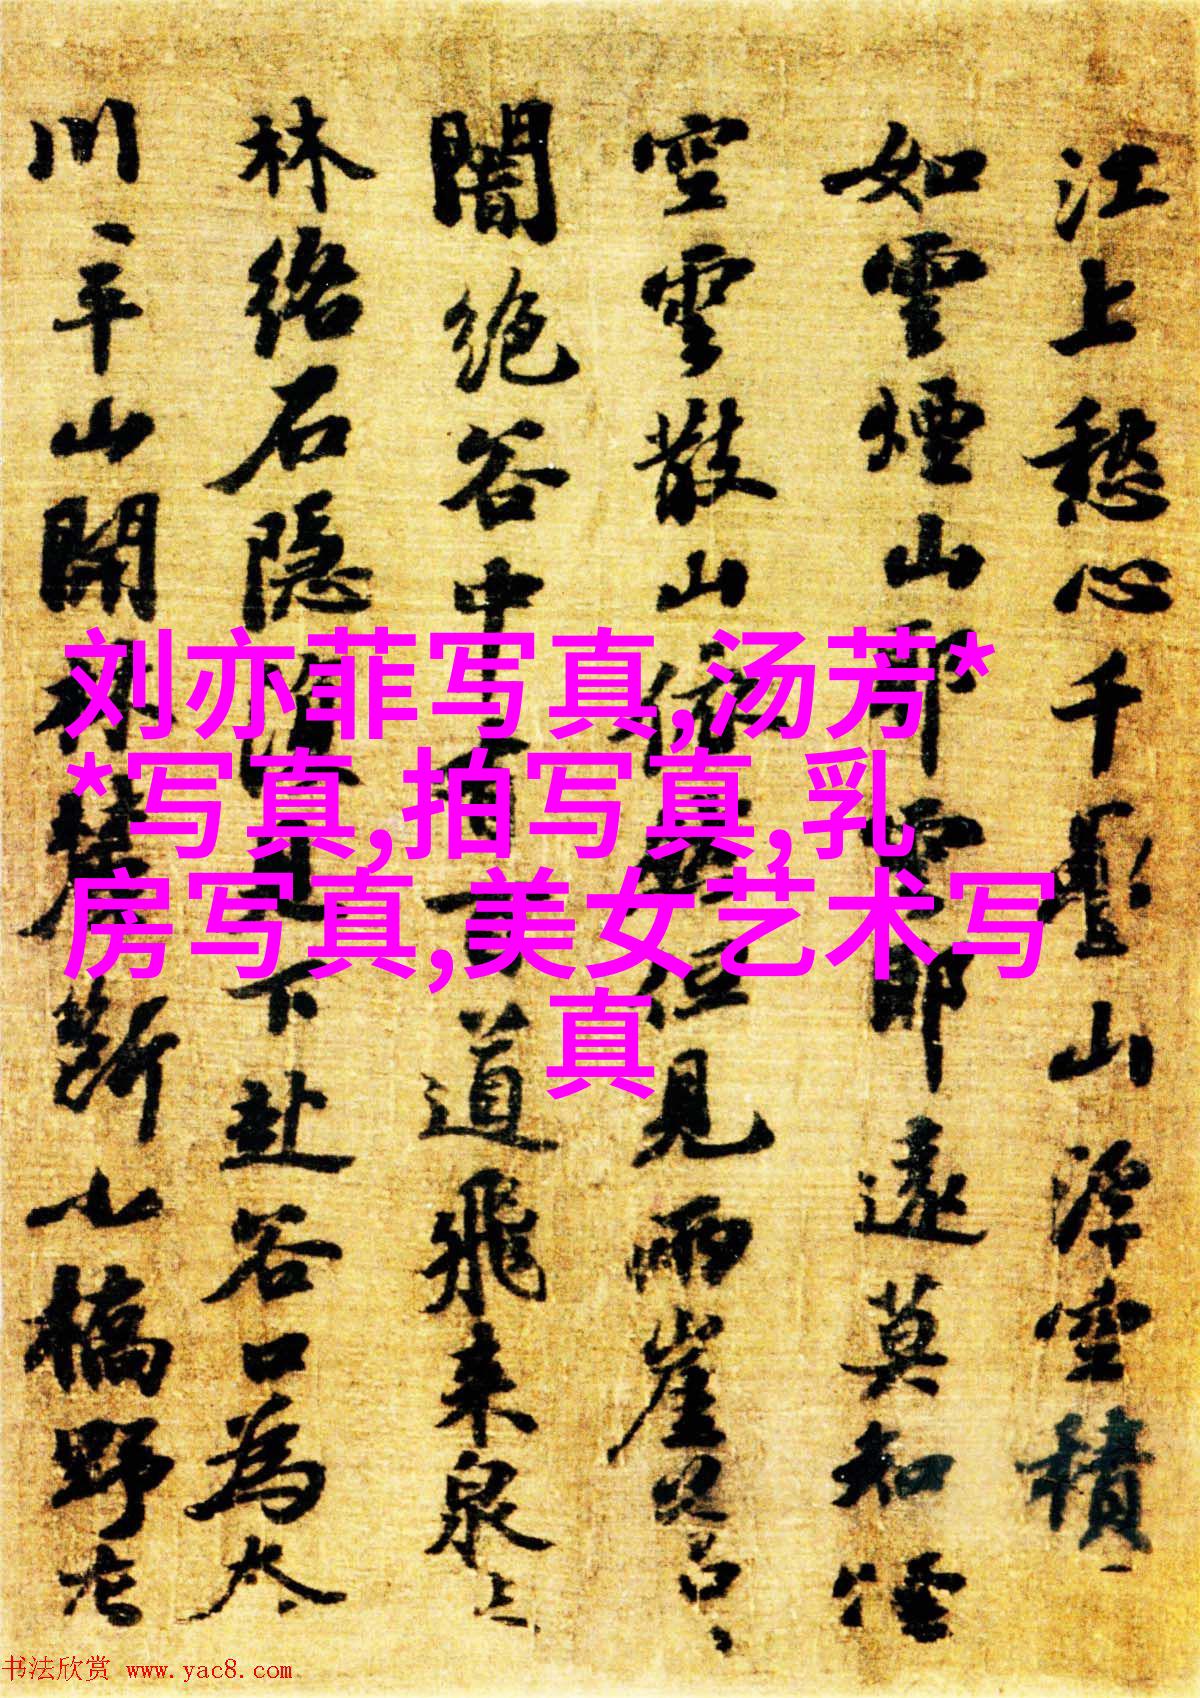 江上愁心千疊山浮空積
如雲煙山耶雲耶遠莫知煙
空雲散山依然但見兩崖蒼〻
闇絶谷中有百道飛來泉
林絡石隱復見下赴谷口為奔
川〻平山開林麓斷小橋野店
刘亦菲写真,汤芳*
*写真,拍写真,乳
房写真,美女艺术写
真
书法欣赏 www.yac8.com